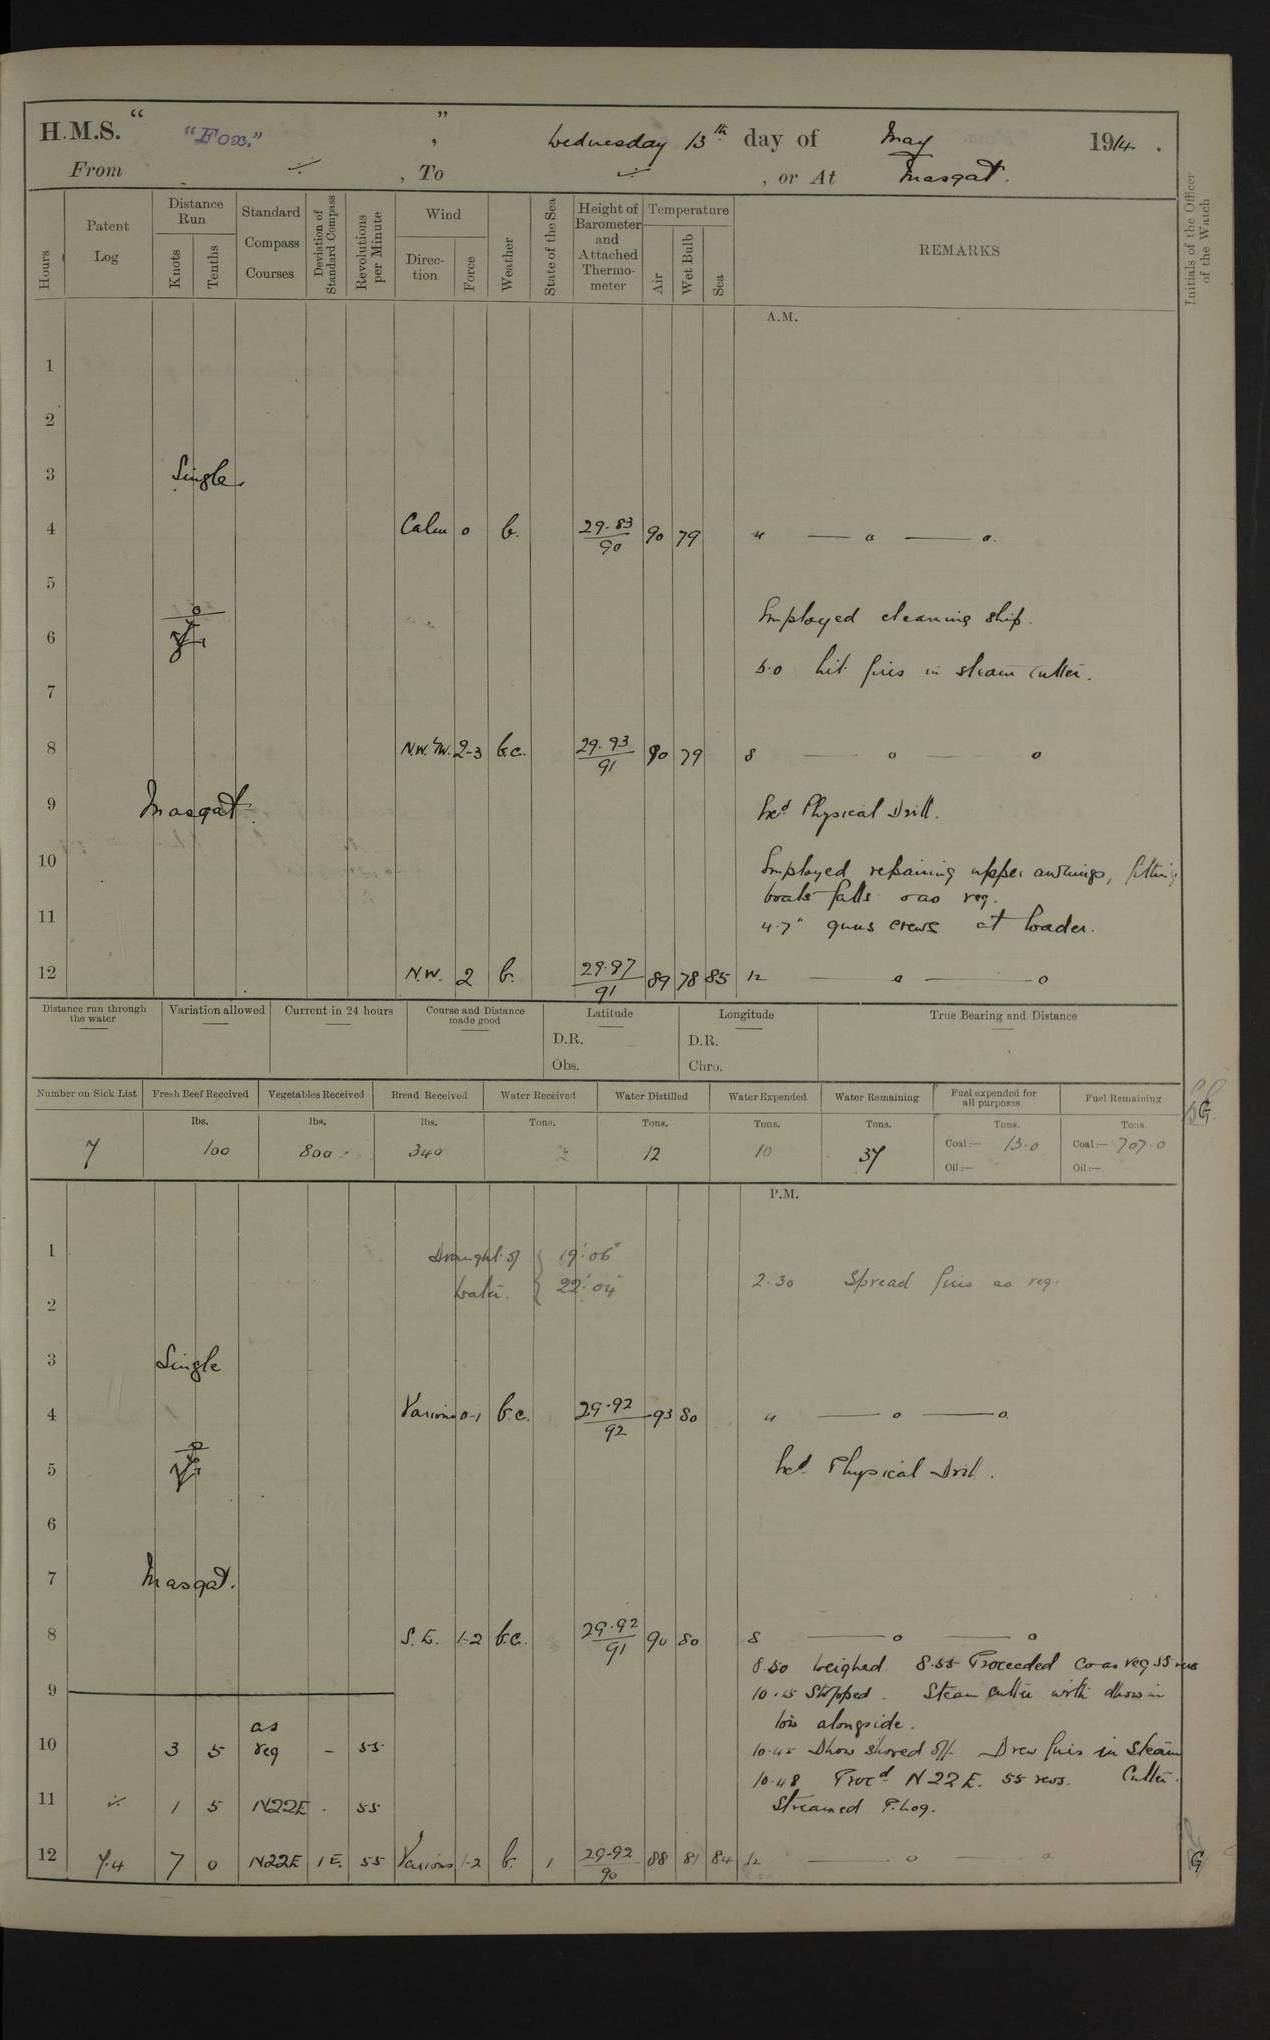 H.M.S. “ "Fox." ” , Wednesday 13th day of May 1914 .
From , To , or At Masqat.
Hours
Patent Log
Distance Run
Knots
Tenths
Standard Compass Courses
Deviation of Standard Compass
Revolutions per Minute
Wind
Direction
Force
Weather
State of the Sea
Height of Barometer and Attached Thermometer
Temperature
Air
Wet Bulb
Sea
REMARKS
Initials of the Officer of the Watch
A.M.
1
2
3 Single
4 Calm 0 b. 29.83/90 90 79 4 — o — o.
5
Employed cleaning ship.
6
5.0 lit fires in steam cutter.
7
8 N.W.'W. 2-3 b.c. 29.93/91 90 79 8 — o — o
9 Masqat. Hds Physical Drill.
10 Employed repairing upper awnings, fitting
boats falls & as req.
11 4.7" guns crews at loader.
12 N.W. 2 b. 29.97/91 89 78 85 12 — o — o
Distance run through the water
Variation allowed
Current in 24 hours
Course and Distance made good
Latitude
D.R.
Obs.
Longitude
D.R.
Chro.
True Bearing and Distance
Number on Sick List
Fresh Beef Received
Vegetables Received
Bread Received
Water Received
Water Distilled
Water Expended
Water Remaining
Fuel expended for all purposes
Fuel Remaining
lbs. lbs. lbs. Tons. Tons. Tons. Tons. Tons. Tons.
7 100 800 340 12 10 37 Coal:— 13.0 Coal:— 707.0
Oil:— Oil:—
P.M.
1 Draught of 19'.06"
Water. 22'.04" 2.30 Spread fires as req.
2
3 Single
4 Various 0-1 b.c. 29.92/92 93 80 4 — o — o
5 Hds Physical Drill.
6
7 Masqat.
8 S.E. 1-2 b.c. 29.92/91 90 80 8 — o — o
8.50 Weighed. 8.55 Proceeded Co as req 55 revs
9 10.15 Stopped. Steam cutter with dhow in
tow alongside.
10 3 5 as req - 55 10.45 Dhow shoved off. Drew fires in Steam
Cutter.
10.48 Procd N22E. 55 revs.
11 1 5 N22E . 55 Streamed P. Log.
12 7.4 7 0 N22E 1E. 55 Various 1-2 b. 1 29.92/90 88 81 84 12 — o — o